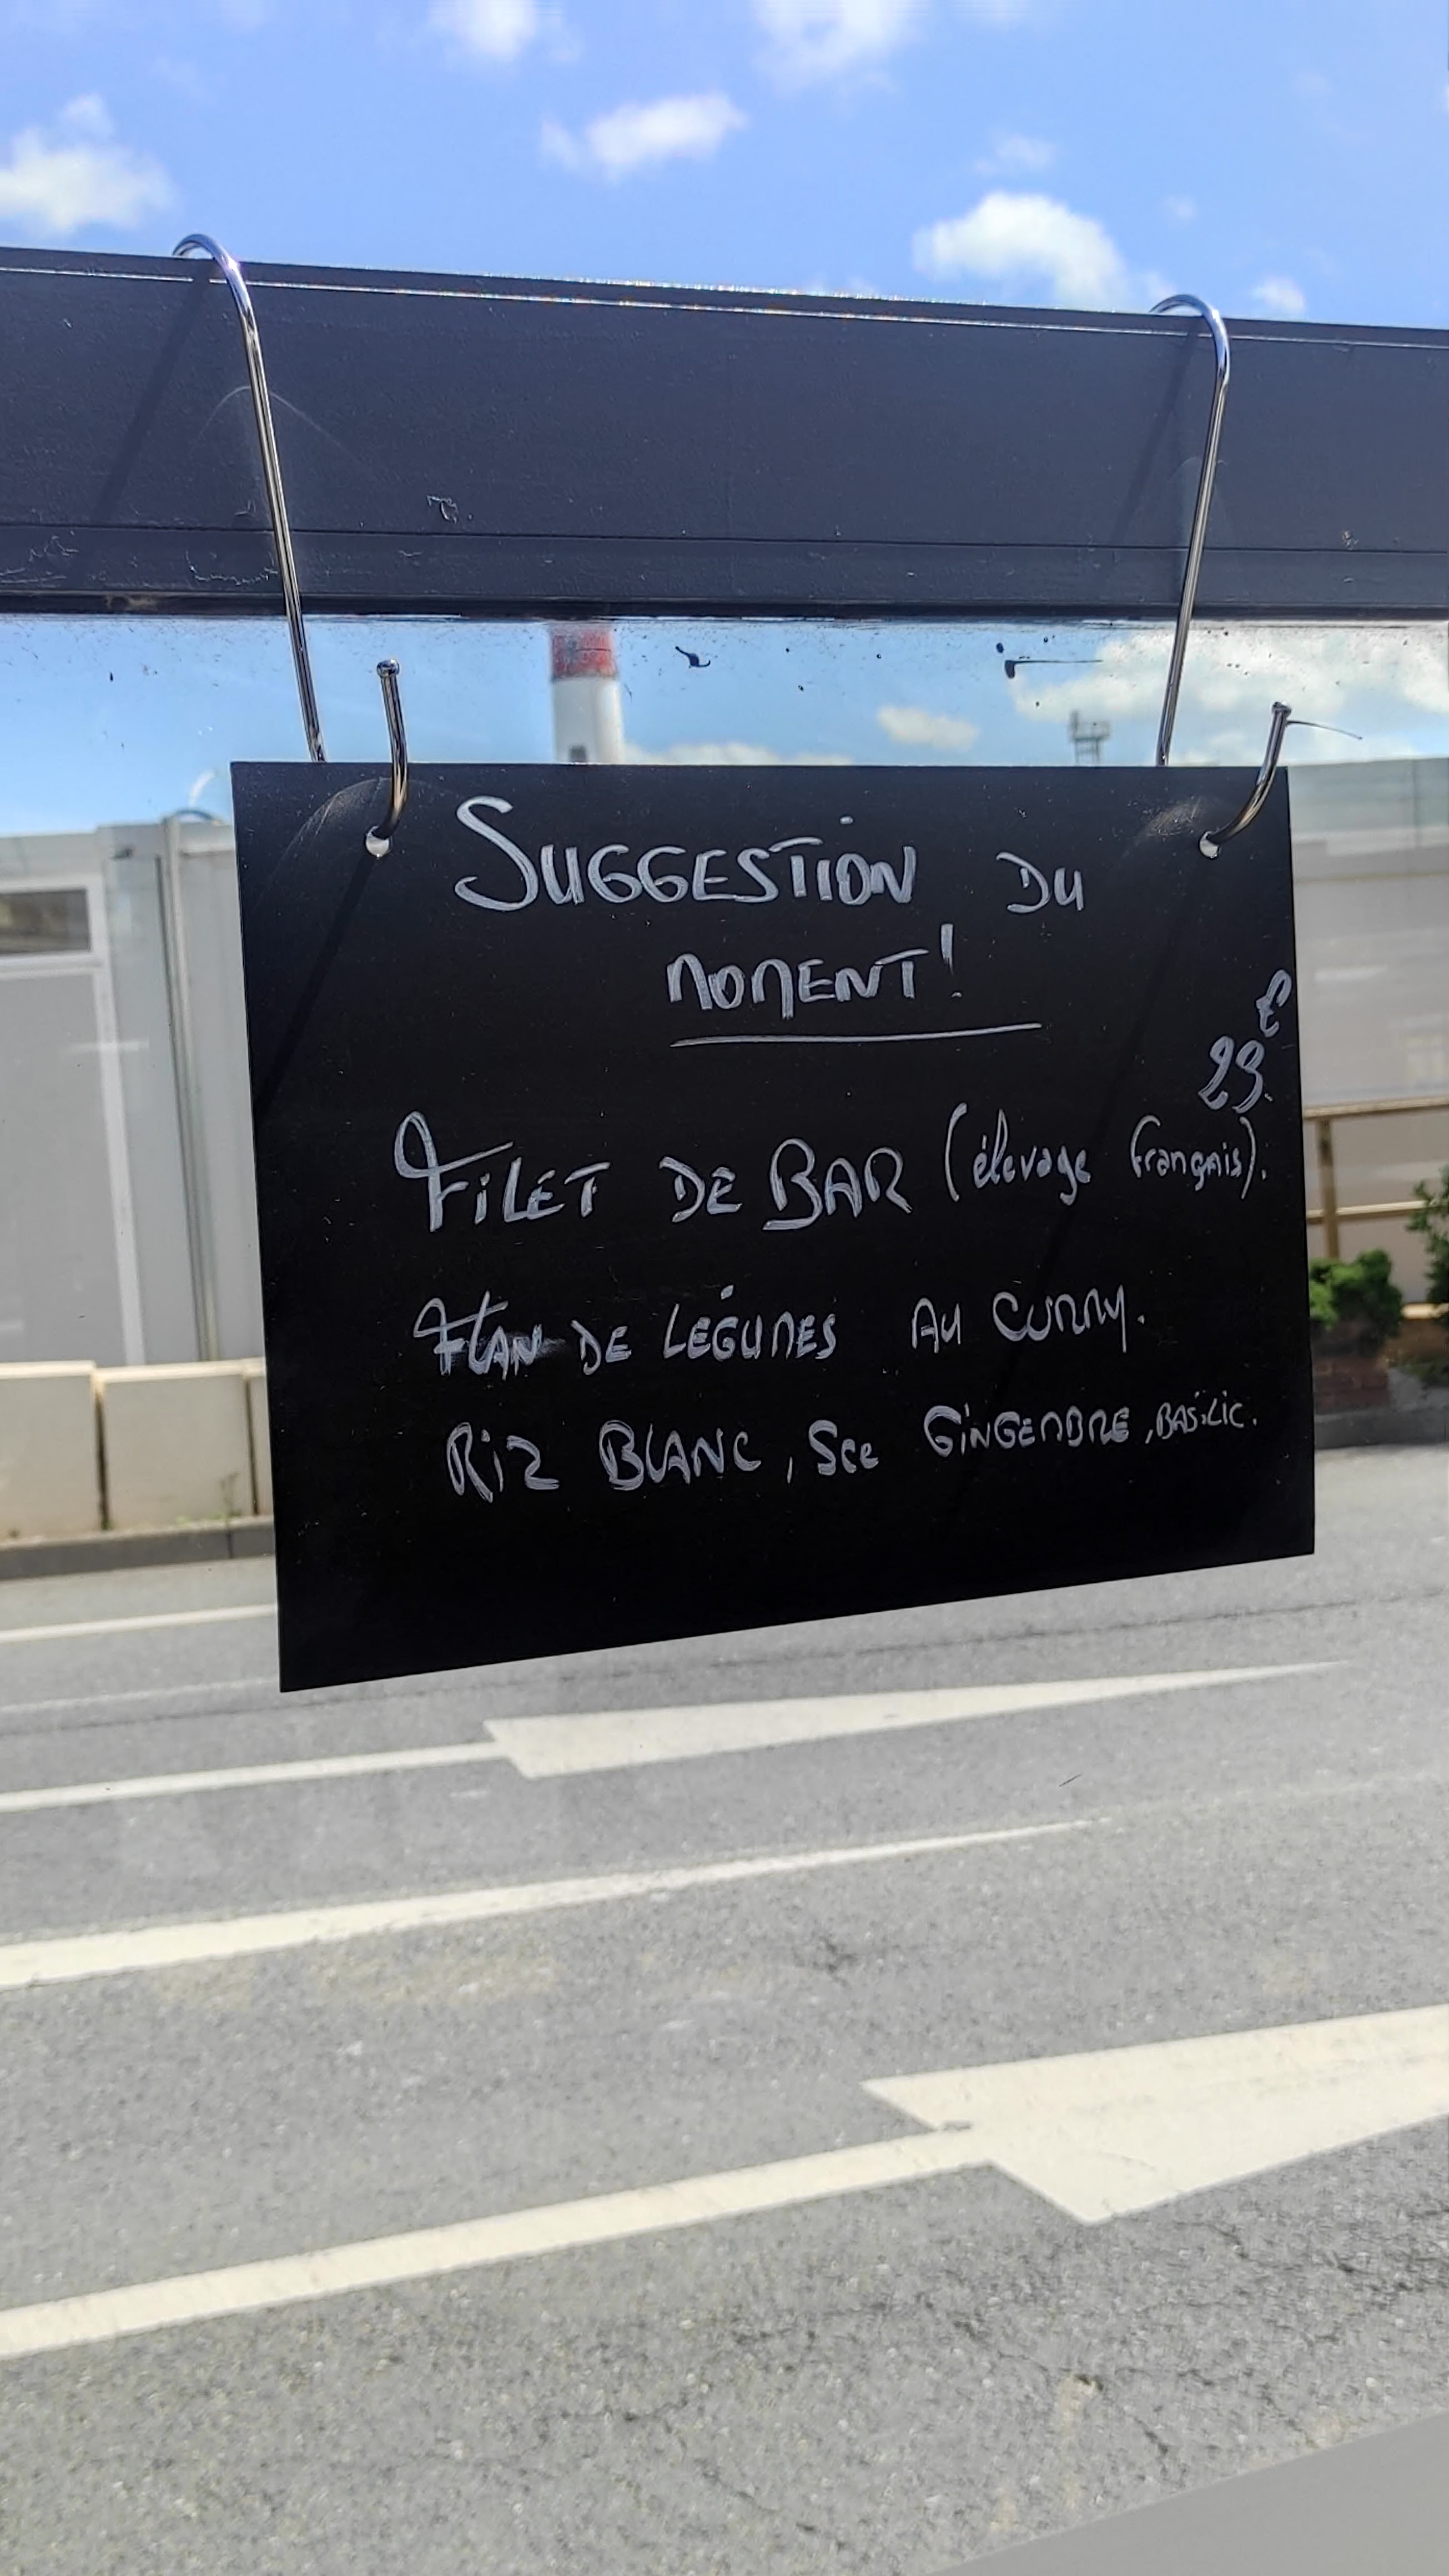 SUGGESTION DU
MOMENT!
23€
FILET DE BAR (élevage français).
FLAN DE LÉGUMES AU CURRY.
RIZ BLANC, Sce GINGEMBRE, BASILIC.